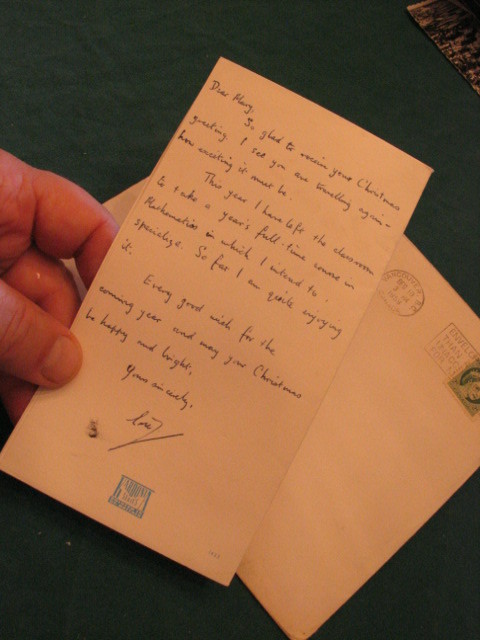 Dear Mary,
So glad to receive your Christmas
greeting. I see you are travelling again –
how exciting it must be.
This year I have left the classroom
to take a year's full-time course in
Mathematics in which I intend to
specialize. So far I am quite enjoying
it.
Every good wish for the
coming year and may your Christmas
be happy and bright,
Yours sincerely,